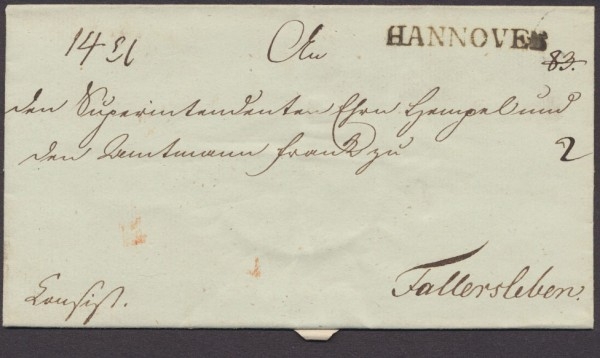 1431
An
HANNOVER
83.
den Superintendenten Ehrn Hempel und
den Amtmann Frank zu
2
Consist.
Fallersleben.